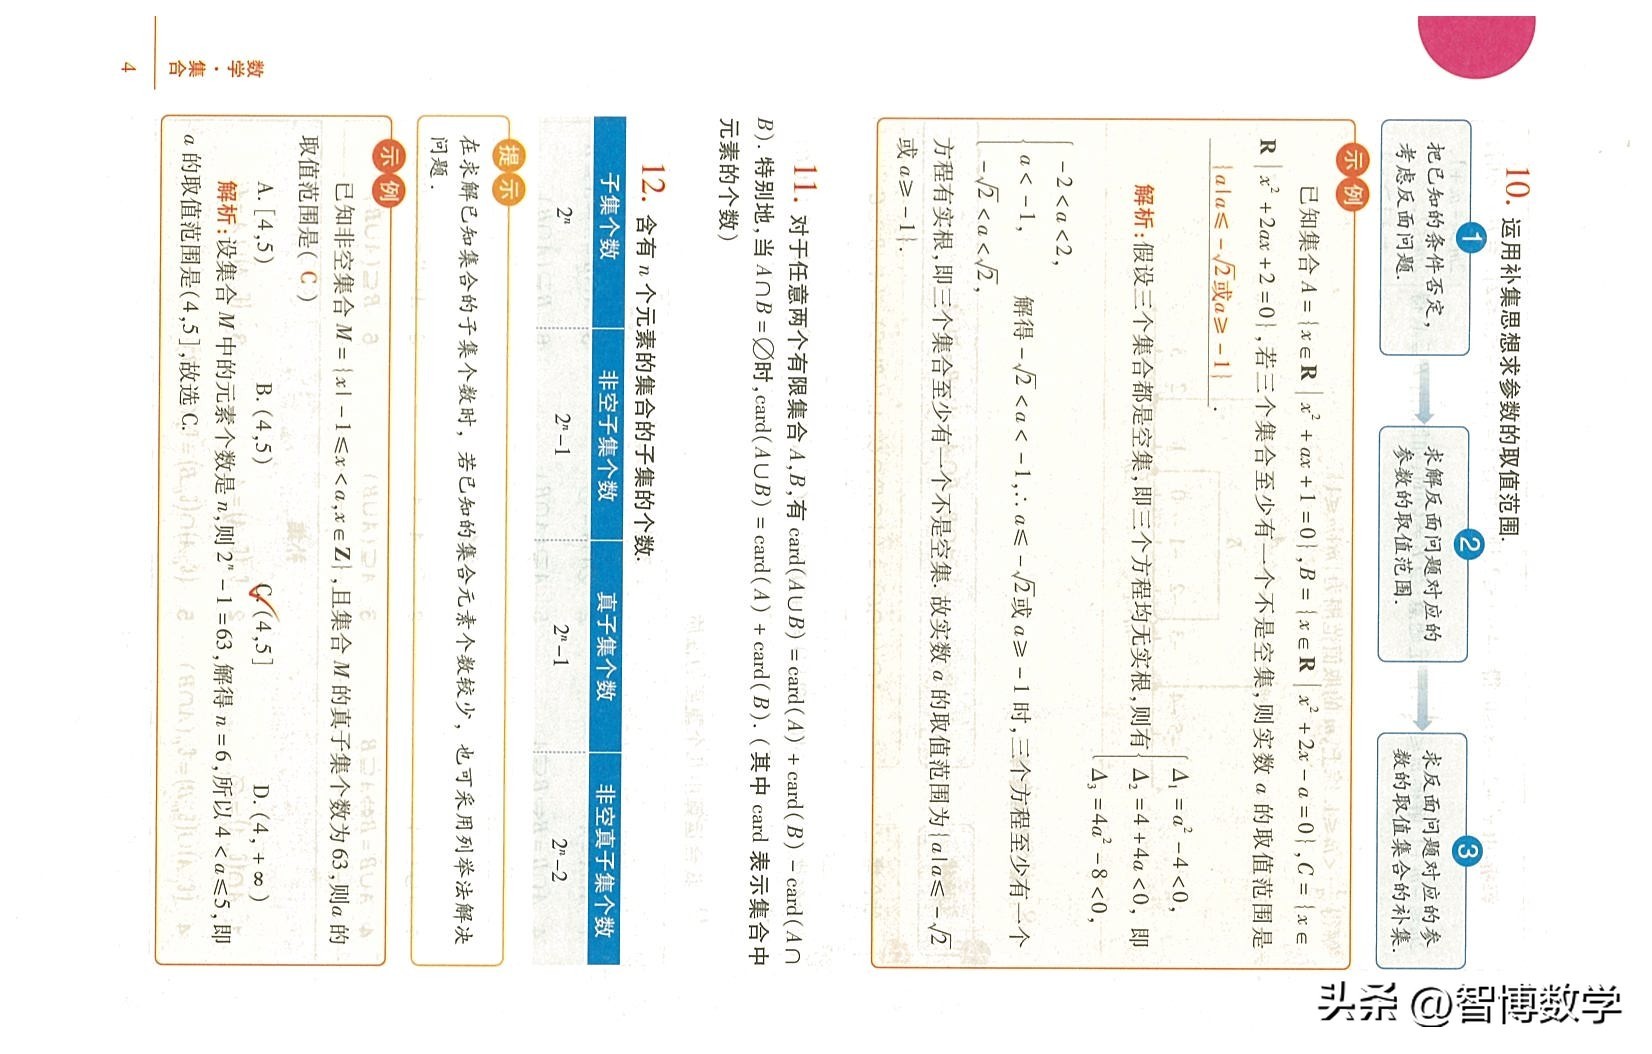 10. 运用补集思想求参数的取值范围.
1
把已知的条件否定，
考虑反面问题.
2
求解反面问题对应的
参数的取值范围.
3
求反面问题对应的参
数的取值集合的补集.
示例
已知集合A={x∈R|x²+ax+1=0},B={x∈R|x²+2x-a=0},C={x∈
R|x²+2ax+2=0},若三个集合至少有一个不是空集,则实数a的取值范围是
{a|a≤-√2或a≥-1}.
解析:假设三个集合都是空集,即三个方程均无实根,则有{Δ₁=a²-4<0,
Δ₂=4+4a<0, 即
Δ₃=4a²-8<0,
{-2<a<2,
a<-1, 解得-√2<a<-1,∴a≤-√2或a≥-1时,三个方程至少有一个
-√2<a<√2,
方程有实根,即三个集合至少有一个不是空集.故实数a的取值范围为{a|a≤-√2
或a≥-1}.
11. 对于任意两个有限集合A,B,有card(A∪B)=card(A)+card(B)-card(A∩
B).特别地,当A∩B=∅时,card(A∪B)=card(A)+card(B).(其中card表示集合中
元素的个数)
12. 含有n个元素的集合的子集的个数.
子集个数 非空子集个数 真子集个数 非空真子集个数
2ⁿ 2ⁿ-1 2ⁿ-1 2ⁿ-2
提示
在求解已知集合的子集个数时，若已知的集合元素个数较少，也可采用列举法解决
问题.
示例
已知非空集合M={x|-1≤x<a,x∈Z},且集合M的真子集个数为63,则a的
取值范围是( C )
A.[4,5) B.(4,5) C.(4,5] D.(4,+∞)
解析:设集合M中的元素个数是n,则2ⁿ-1=63,解得n=6,所以4<a≤5,即
a的取值范围是(4,5],故选C.
数学·集合
4
头条 @智博数学